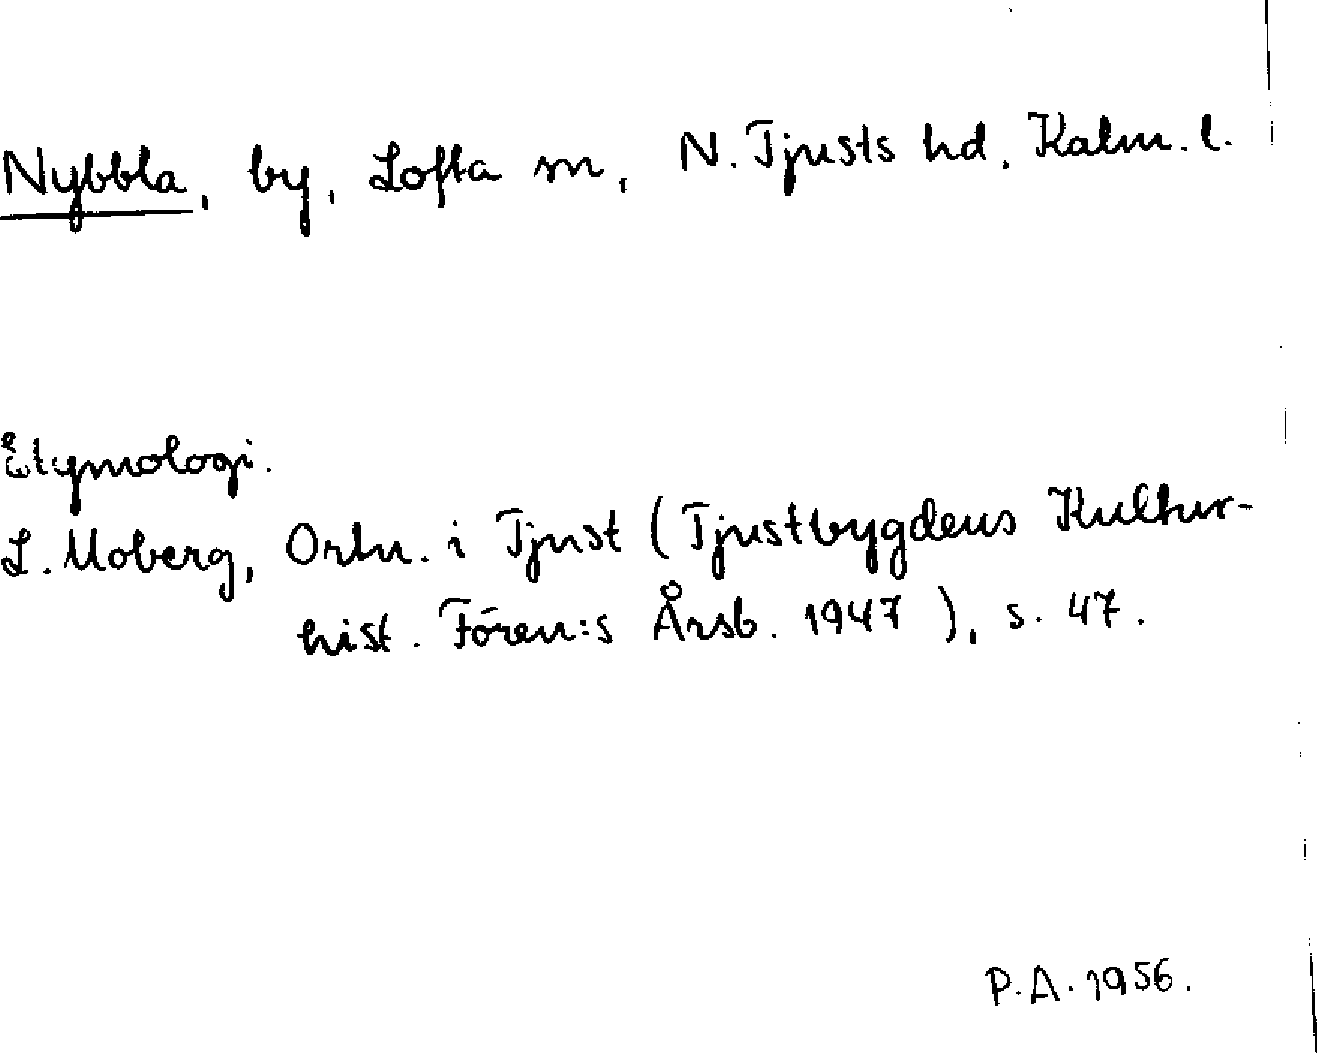 Nybbla, by, Lofta sn, N. Tjusts hd, Kalm. l.
Etymologi.
L. Moberg, Ortn. i Tjust (Tjustbygdens Kultur-
hist. Fören:s Årsb. 1947), s. 47.
P.A. 1956.